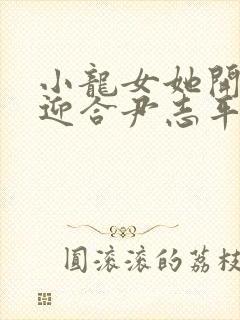 小龍女她開
迎合尹志平
圓滾滾的荔枝